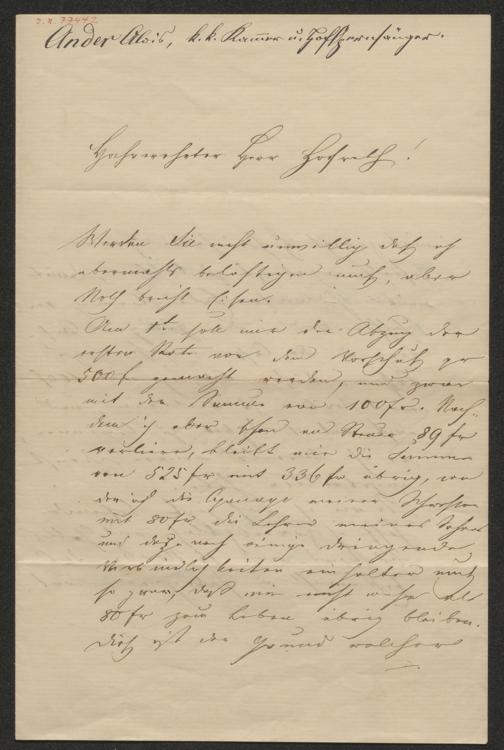 Ander Alois, k.k. Kammer u. Hofopernsänger.
Hochverehrter Herr Hofrath!
Werden Sie nicht unwillig daß ich
abermahls belästigen muß, aber
Noth bricht Eisen.
Am 1t soll mir der Abzug der
ersten Rate von dem Vorschuß pr
500f gemacht werden, und zwar
mit der Summe von 100fr. Nach-
dem ich aber schon an Steuer 89fr
verliere, bleibt mir die Summe
von 525fr mit 336fr übrig, wo
die Apanage meiner Schwester
mit 80fr die Lehrer meines Sohnes
und noch einige dringende
Verbindlichkeiten einhalten muß
so zwar, daß mir nicht mehr als
80fr zum Leben übrig bleiben.
Dieß ist der Grund welcher